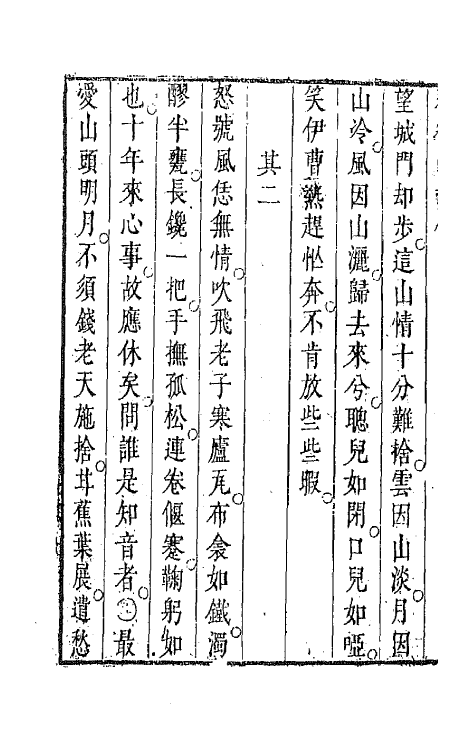 望城門却步這山情十分難捨雲因山淡月因
山冷風因山灑歸去來兮聰兒如閉口兒如啞
笑伊曹熱趕忙奔不肯放些些暇
其二
怒號風恁無情吹飛老子寒廬瓦布衾如鐵濁
醪半甕長鑱一把手撫孤松連卷偃蹇鞠躬如
也十年來心事故應休矣問誰是知音者㊀最
愛山頭明月不須錢老天施捨茸蕉葉展遣愁